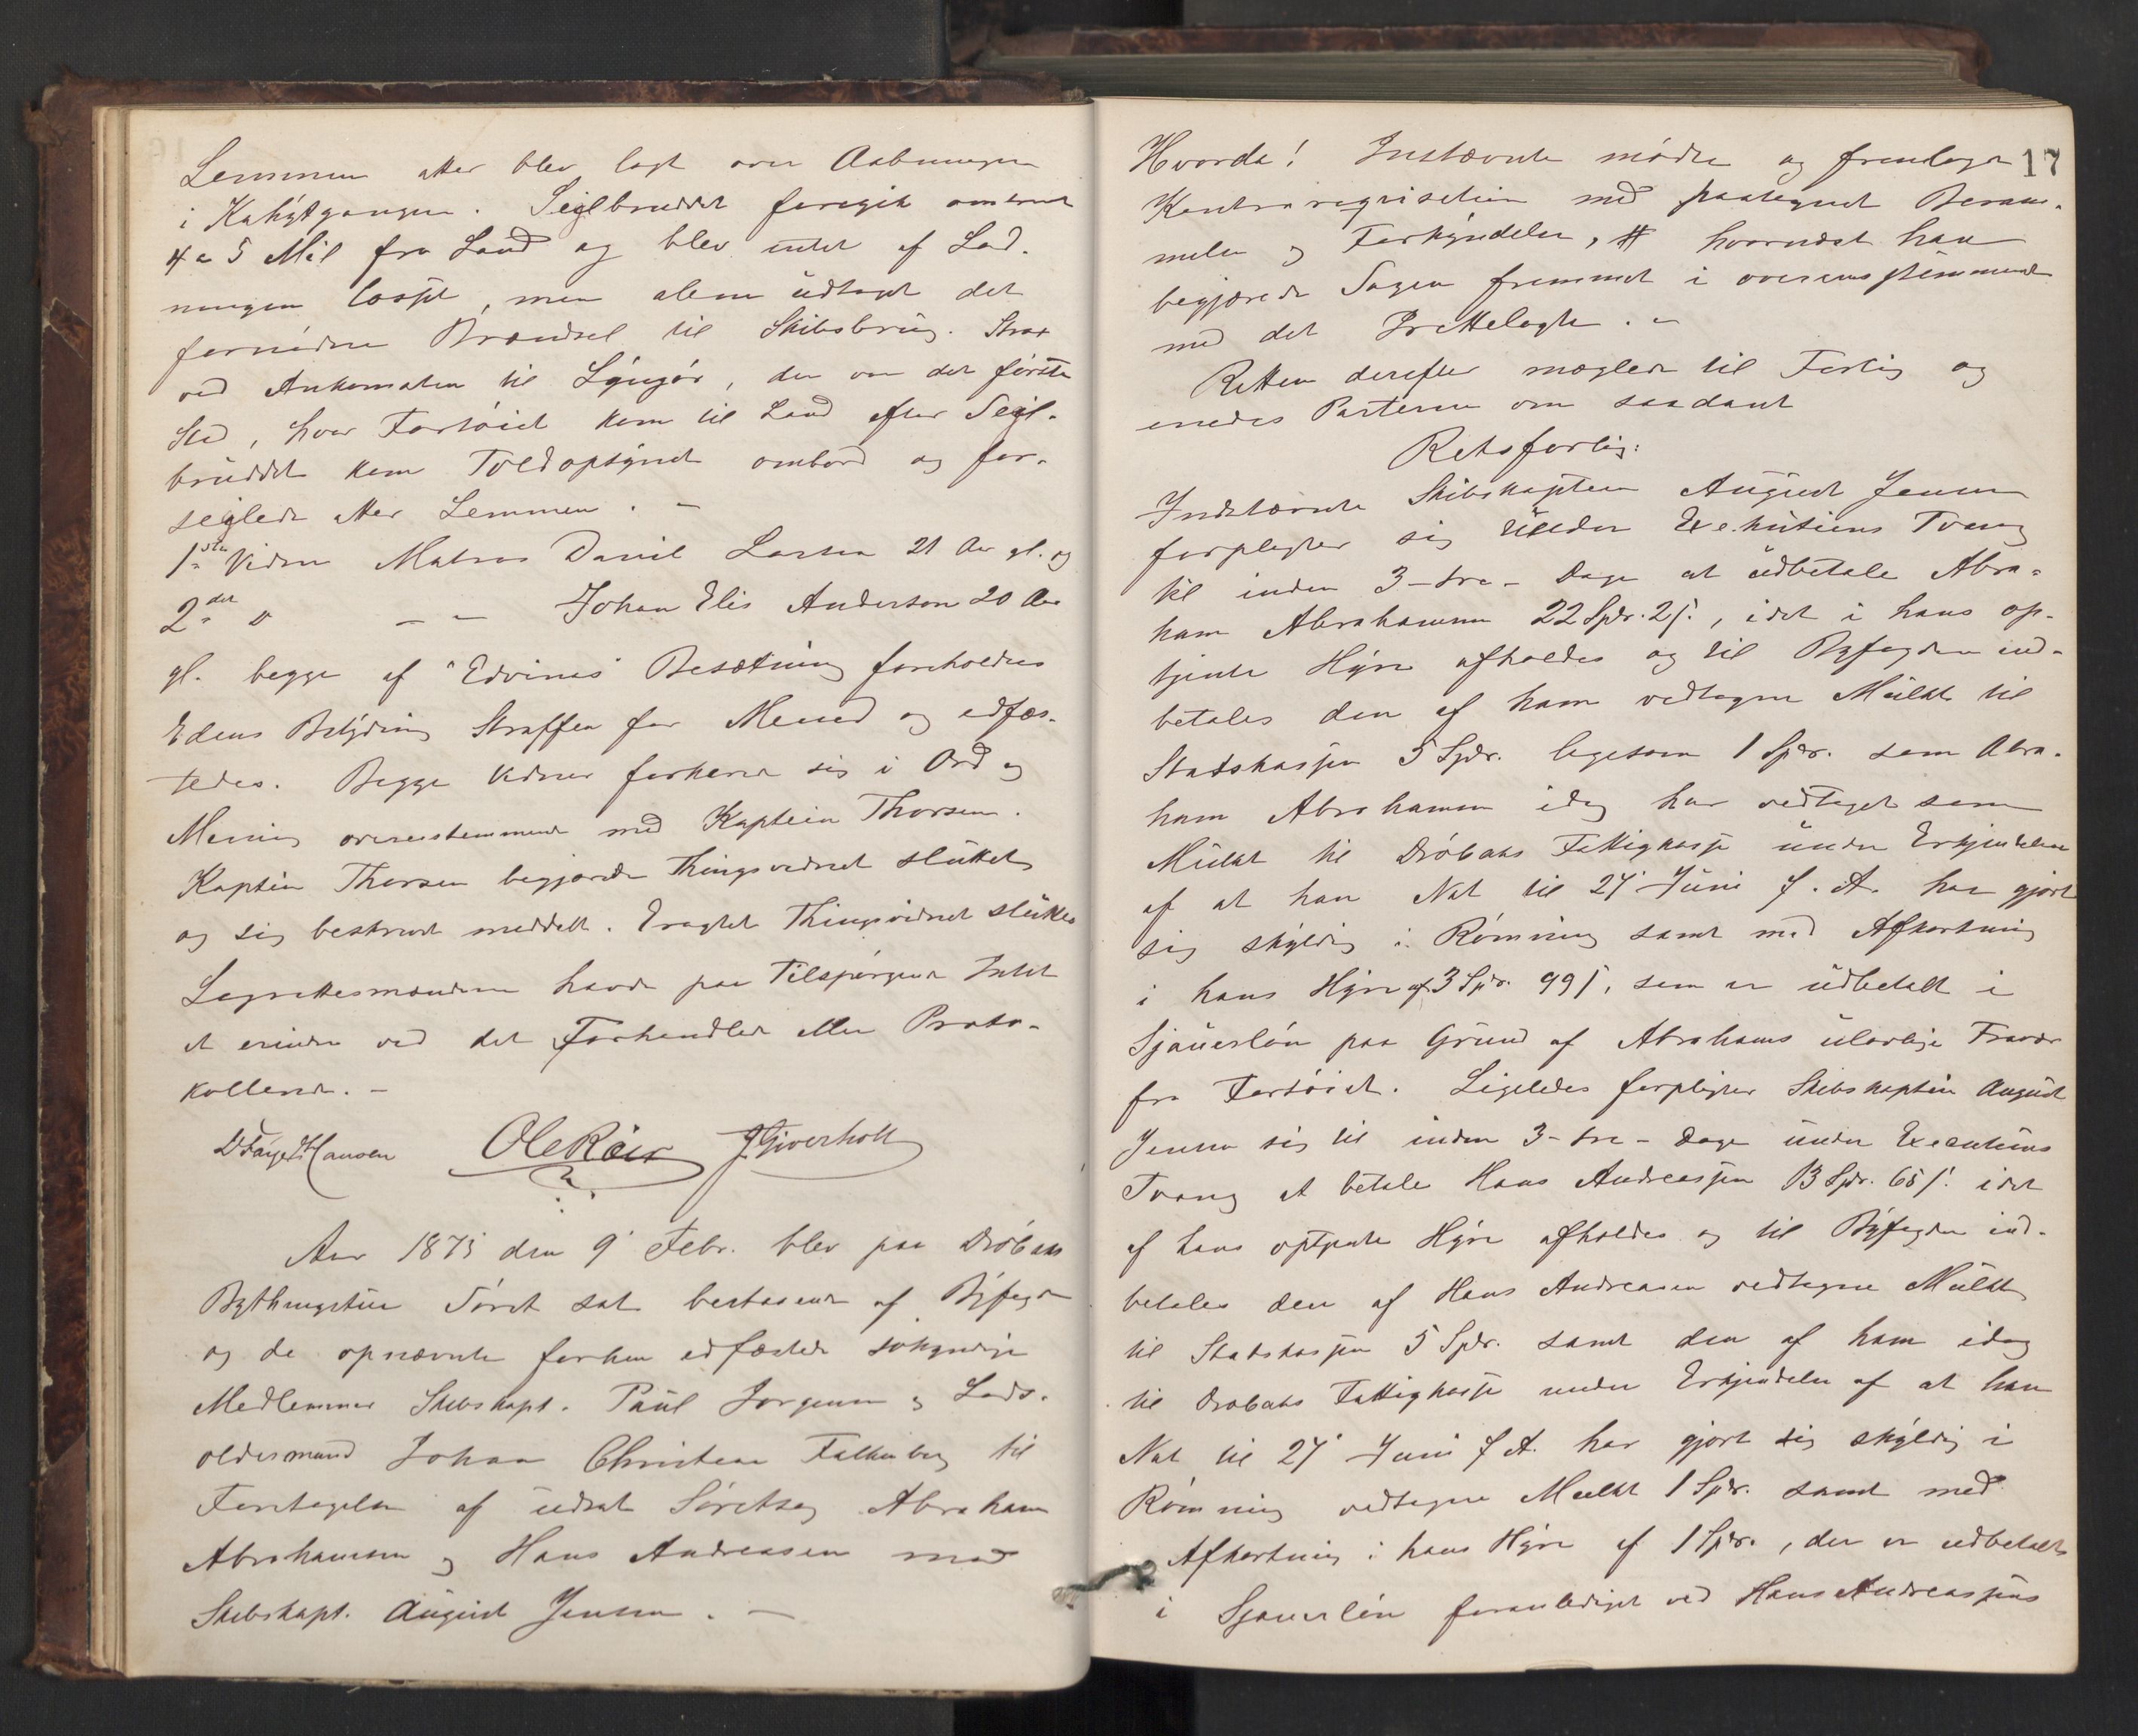 Lemmen atter blev lagt over Aabningen
i Kahytgangen. Seglbruddet foregik omtrent
4 a 5 Mil fra Land og blev intet af Lad-
ningen losset, men alene udtaget det
fornødne Brændsel til Skibsbrug. Strax
ved Ankomsten til Lyngør, der var det første
Sted, hvor Fartøiet kom til Land efter Segl-
bruddet kom Toldopsynet ombord og for-
seglede atter Lemmen. –
1ste Vidne Matros Daniel Larsen 21 Aar gl. og
2det " – – Johan Elis Anderson 20 Aar
gl. begge af "Edvinas" Besætning foreholdtes
Edens Betydning Straffen for Meened og edfæs-
tedes. Begge Vidner forklarede sig i Ord og
Mening overensstemmende med Kaptein Thorsen.
Kaptein Thorsen begjærede Thingsvidnet sluttet
og sig beskrevet meddelt. Eragtet Thingsvidnet sluttes
Lagrettesmændene havde paa Tilspørgende Intet
at erindre ved det Forhandlede eller Proto-
kollerede. –
D Faye Hansen Ole Røer J Gjverholt
Aar 1875 den 9' Febr. blev paa Drøbaks
Bythingstue Søret sat bestaaende af Byfogden
og de opnævnte forhen edfæstede søkyndige
Medlemmer Skibskapt. Paul Jørgensen og Lods-
oldermand Johan Christian Falkenberg til
Foretagelse af udsat Søretssag Abraham
Abrahamsen og Hans Andreasen mod
Skibskapt. August Jensen. –
17
Hvorda! Instævnte mødte og fremlagde
Kontrarequisition med paategnet Beram-
melse og Forkyndelse, hvornæst han
begjærede Sagen fremmet i overensstemmende
med det Irettelagte. –
Retten derefter meglede til Forlig og
enedes Parterne om saadant
Retsforlig:
Indstævnte Skibskaptein August Jensen
forpligter sig under Exekutions Tvang
til inden 3 – tre – Dage at udbetale Abra-
ham Abrahamsen 22 Spdr. 2 s., idet i hans op-
tjente Hyre afholdes og til Byfogden ind-
betales den af ham vedtagne Mulkt til
Statskassen 5 Spdr. ligesom 1 Spdr. som Abra-
ham Abrahamsen idag har vedtaget som
Mulkt til Drøbaks Fattigkasse under Erkjendelse
af at han Nat til 27' Juni f. A. har gjort
sig skyldig i Rømning samt med Afkortning
i hans Hyre af 3 Spdr. 99 s, som er udbetalt i
Sjauerløn paa Grund af Abrahams ulovlige Fravær
fra Fartøiet. Ligeledes forpligter Skibskaptein August
Jensen sig til inden 3 – tre – Dage under Executions
Tvang at betale Hans Andreassen 13 Spdr. 68 s. idet
af hans optjente Hyre afholdes og til Byfogden ind-
betales den af Hans Andreasen vedtagne Mulkt
til Statskassen 5 Spdr. samt den af ham idag
til Drøbaks Fattigkasse under Erkjendelse af at han
Nat til 27' Juni f A. har gjort sig skyldig i
Rømning vedtagne Mulkt 1 Spdr. samt med
Afkortning i hans Hyre af 1 Spdr., der er udbetalt
i Sjauerløn foranlediget ved Hans Andreassens